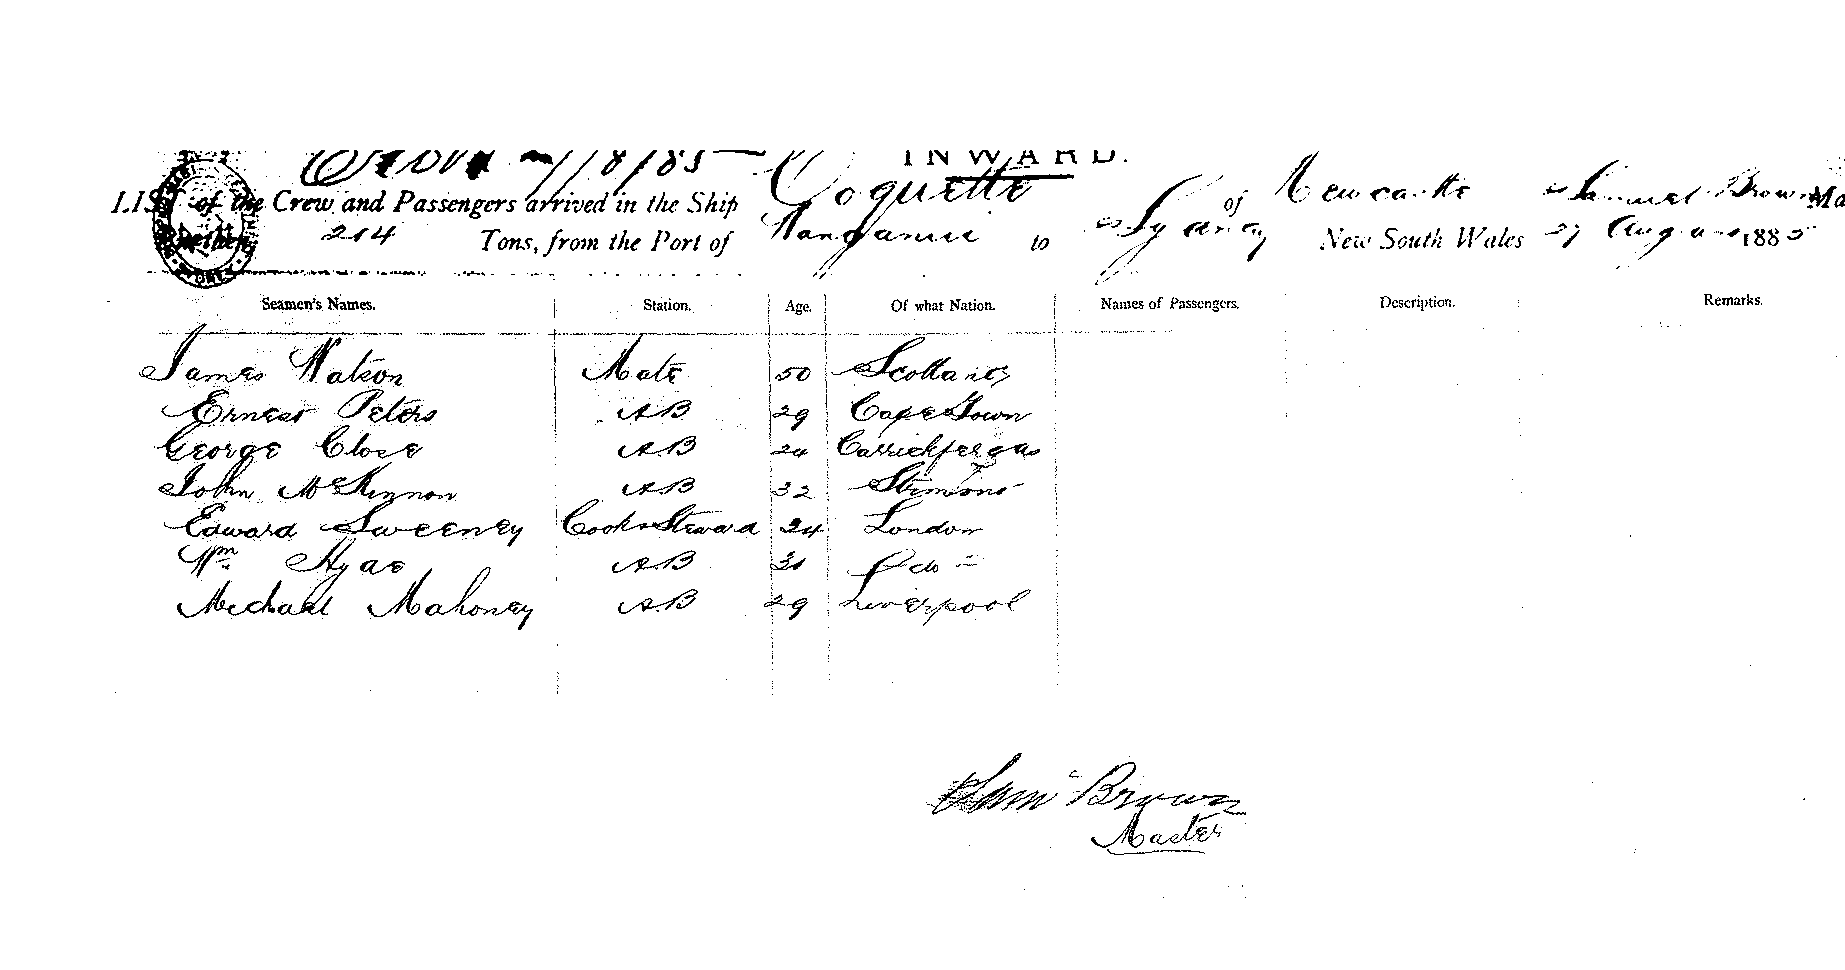 INWARD.
LIST of the Crew and Passengers arrived in the Ship Coquette of Newcastle Samuel Brown Ma
214 Tons, from the Port of Wanganui to Sydney New South Wales 27 August 1885
Seamen's Names. Station. Age. Of what Nation. Names of Passengers. Description. Remarks.
James Watson Mate 50 Scotland
Ernest Peters AB 29 Cape Town
George Close AB 24 Carrickfergus
John McKinnon AB 32
Edward Sweeney Cook & Steward 24 London
Wm Hyde AB 31 do
Michael Mahoney AB 29 Liverpool
Saml Brown
Master